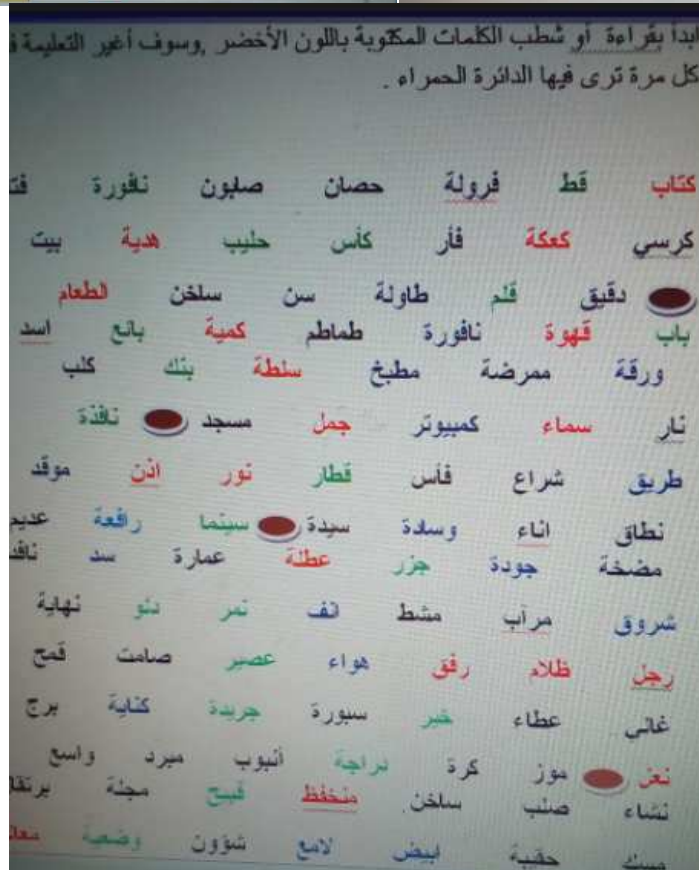 ابدأ بقراءة أو شطب الكلمات المكتوبة باللون الأخضر ,وسوف أغير التعليمة
كل مرة ترى فيها الدائرة الحمراء .
كتاب قط فرولة حصان صابون نافورة
كرسي كعكة فأر كأس حليب هدية بيت
دقيق قلم طاولة سن ساخن الطعام
باب قهوة نافورة طماطم كمية بائع اسد
ورقة ممرضة مطبخ سلطة بنك كلب
نار سماء كمبيوتر جمل مسجد نافذة
طريق شراع فأس قطار نور اذن موقد
نطاق اناء وسادة سيدة سينما رافعة
مضخة جودة جزر عطلة عمارة سد
شروق مرآب مشط انف نمر دلو نهاية
رجل ظلام رفق هواء عصير صامت قمح
غالي عطاء خبر سبورة جريدة كتابة برج
موز كرة دراجة أنبوب مبرد واسع
نشاء صلب ساخن منخفظ قبيح مجلة
مسك حقيبة ابيض لامع شؤون وضعية